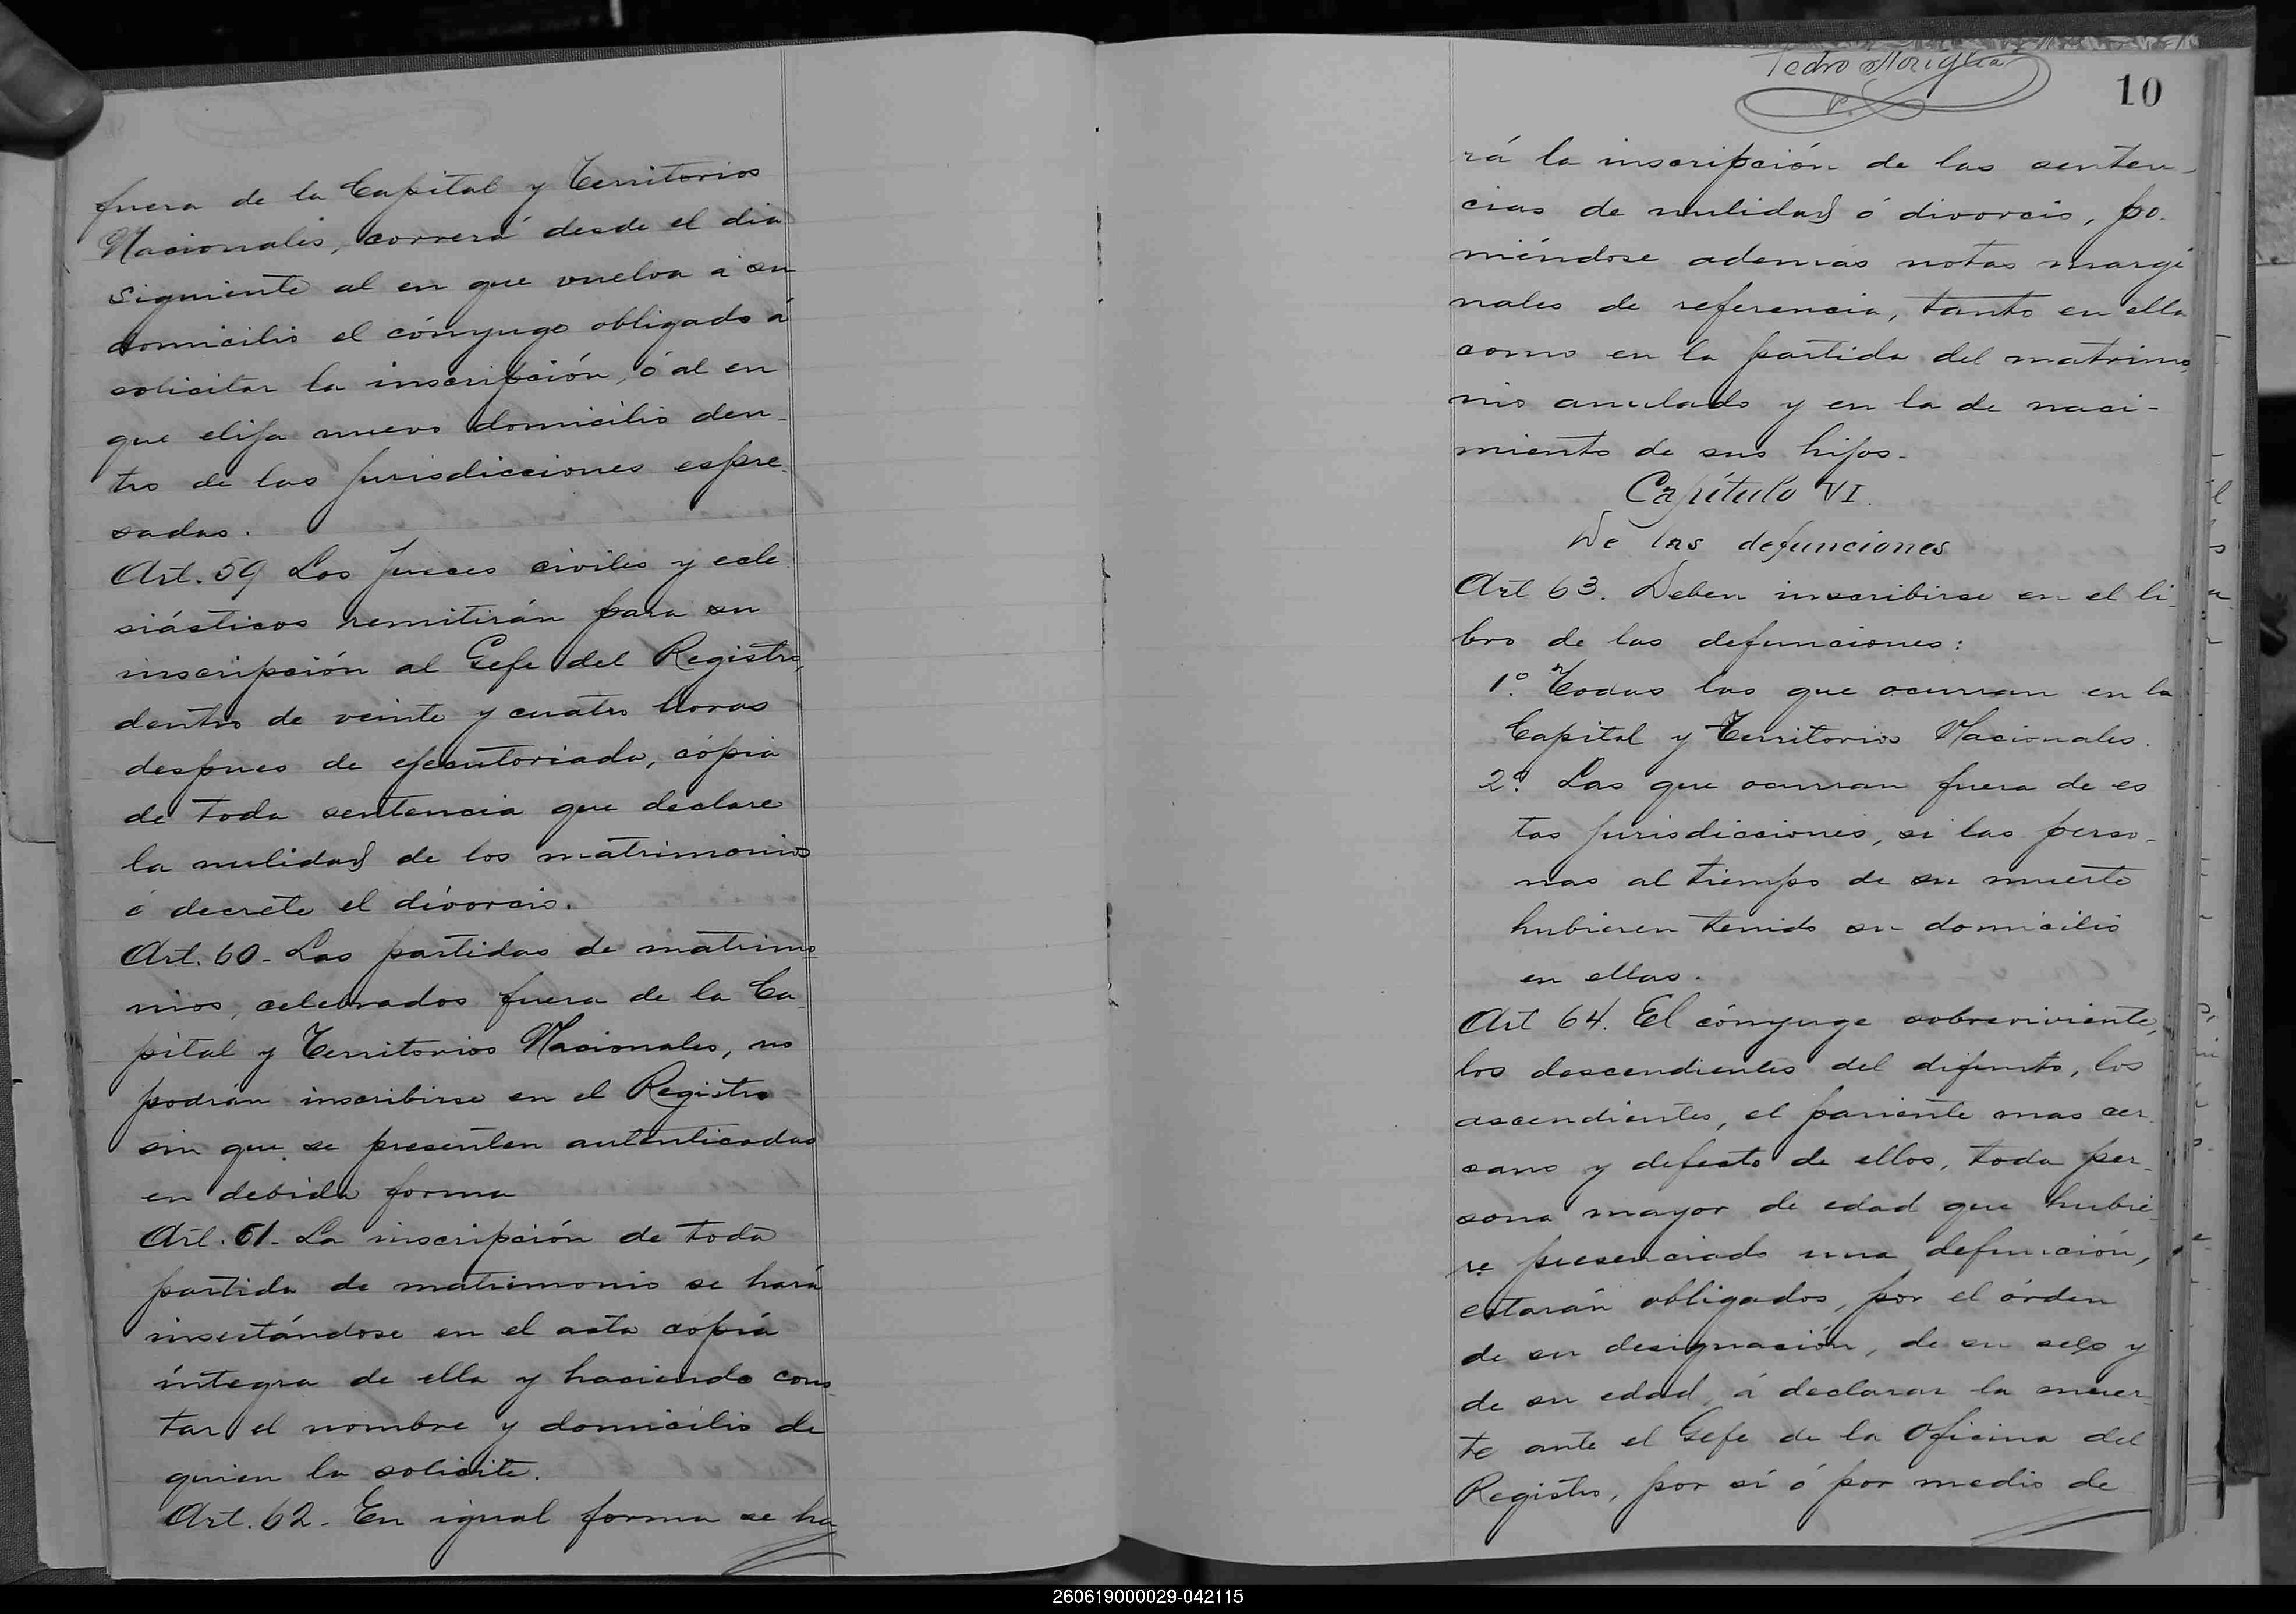 fuera de la Capital y Territorios
Nacionales, correrá desde el dia
siguiente al en que vuelva á su
domicilio el cónyuge obligado á
solicitar la inscripción, ó al en
que elija nuevo domicilio den-
tro de las jurisdicciones espre-
sadas.
Art. 59 Los Jueces civiles y ecle-
siásticos remitirán para su
inscripción al Gefe del Registro,
dentro de veinte y cuatro horas
despues de ejecutoriada, cópia
de toda sentencia que declare
la nulidad de los matrimonios
ó decrete el divorcio.
Art. 60- Las partidas de matrimo
nios, celebrados fuera de la Ca-
pital y Territorios Nacionales, no
podrán inscribirse en el Registro
sin que se presenten autenticadas
en debida forma
Art. 61- La inscripción de toda
partida de matrimonio se hará
insertándose en el acta cópia
íntegra de ella y haciendo cons
tar el nombre y domicilio de
quien la solicite.
Art. 62- En igual forma se ha
Pedro
10
rá la inscripción de las senten-
cias de nulidad ó divorcio, po-
niéndose ademas notas margi
nales de referencia, tanto en ella
como en la partida del matrimo
nio anulado y en la de naci-
miento de sus hijos.
Capítulo VI.
De las defunciones
Art 63. Deben inscribirse en el li-
bro de las defunciones:
1º. Todas las que ocurran en la
Capital y Territorios Nacionales.
2º. Las que ocurran fuera de es
tas jurisdicciones, si las perso-
nas al tiempo de su muerte
hubieren tenido su domicilio
en ellas.
Art 64. El cónyuge sobreviviente,
los descendientes del difunto, los
ascendientes, el pariente mas cer-
cano y defecto de ellos, toda per-
sona mayor de edad que hubie-
re presenciado una defunción,
estarán obligados, por el órden
de su designación, de su sexo y
de su edad, á declarar la muer-
te ante el Gefe de la Oficina del
Registro, por sí ó por medio de
260619000029-042115